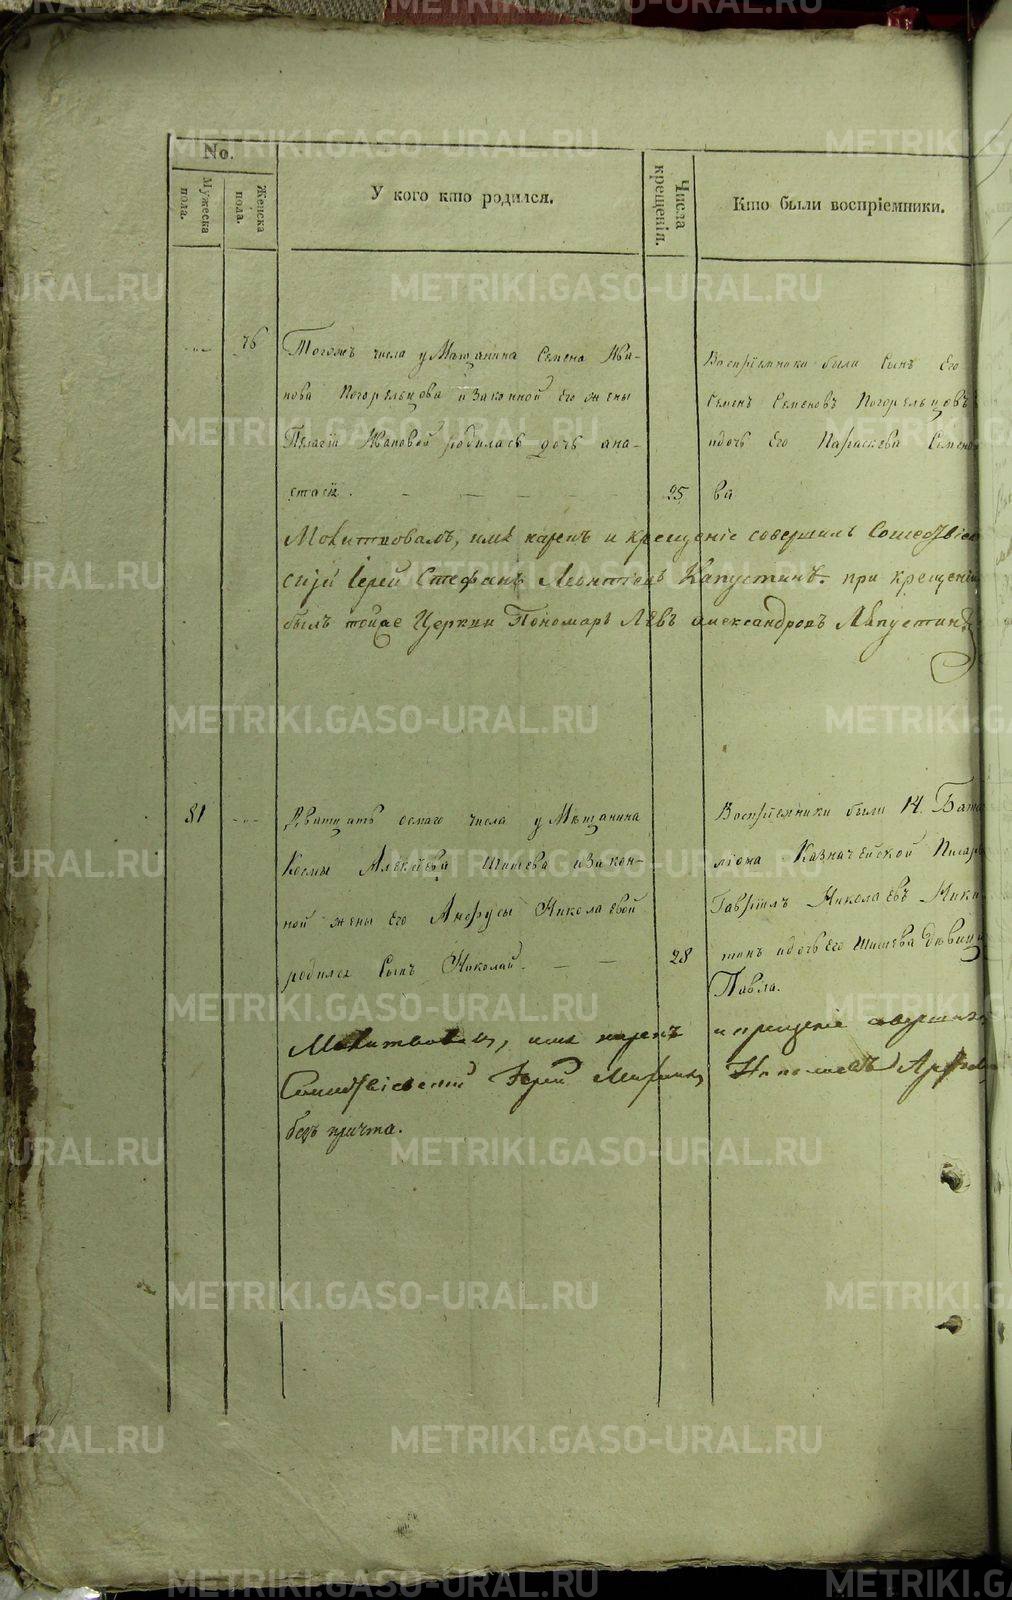 No.
Мужеска пола.
Женска пола.
У кого кто родился.
Числа крещенія.
Кто были воспріемники.
76
Тогожъ числа у Мѣщанина Семена Ива-
нова Погорельцова и Законной Его жены
Пелагіи Ивановой родилась дочь ана-
стасія.
25
Воспріемники были Сынъ Его
Семенъ Семеновъ Погорельцовъ
идочь Его Параскева Семено
ва
Молитвовалъ, имя нарекъ и крещеніе совершилъ Сошествіев
скій Іерей Стефанъ Леонтіевъ Капустинъ. при крещеніи
былъ тойже Церкви Пономарь Левъ александровъ
81
Дватцать осмаго числа у Мѣщанина
Космы Алексѣева Шишева изакон-
ной жены его Анфусы Николаевой
родился Сынъ Николай.
28
Воспріемники были 14. Бата
ліона Казначейской Писарь
Гавріилъ Николаевъ Ники
тинъ идочь Его Шишева Дѣвица
Павла.
Молитвовалъ, имя нарекъ и крещеніе совершилъ
Сошествіевскій Іерей
безъ причта.
METRIKI.GASO-URAL.RU